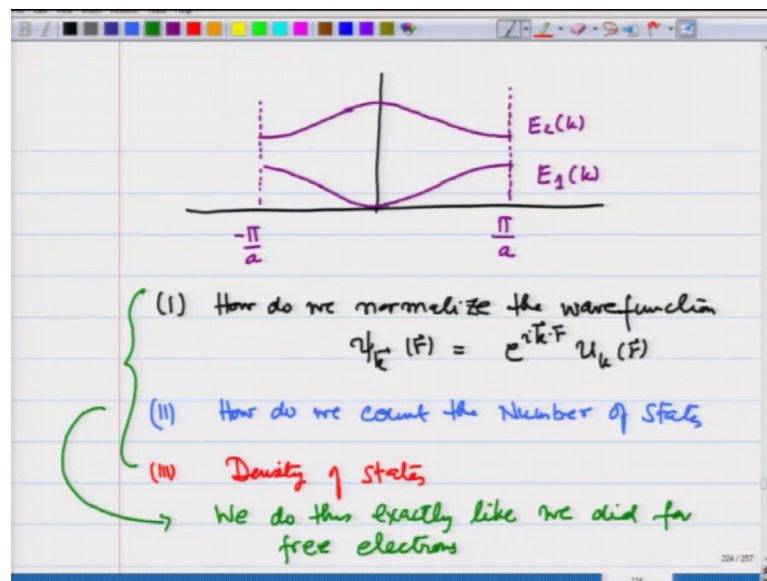 E₂(k)
E₁(k)
-π/a
π/a
(I) How do we normalize the wavefunction
ψ_k⃗ (r⃗) = e^{i k⃗·r⃗} u_k (r⃗)
(II) How do we count the Number of States
(III) Density of states
We do this exactly like we did for
free electrons
224 / 257